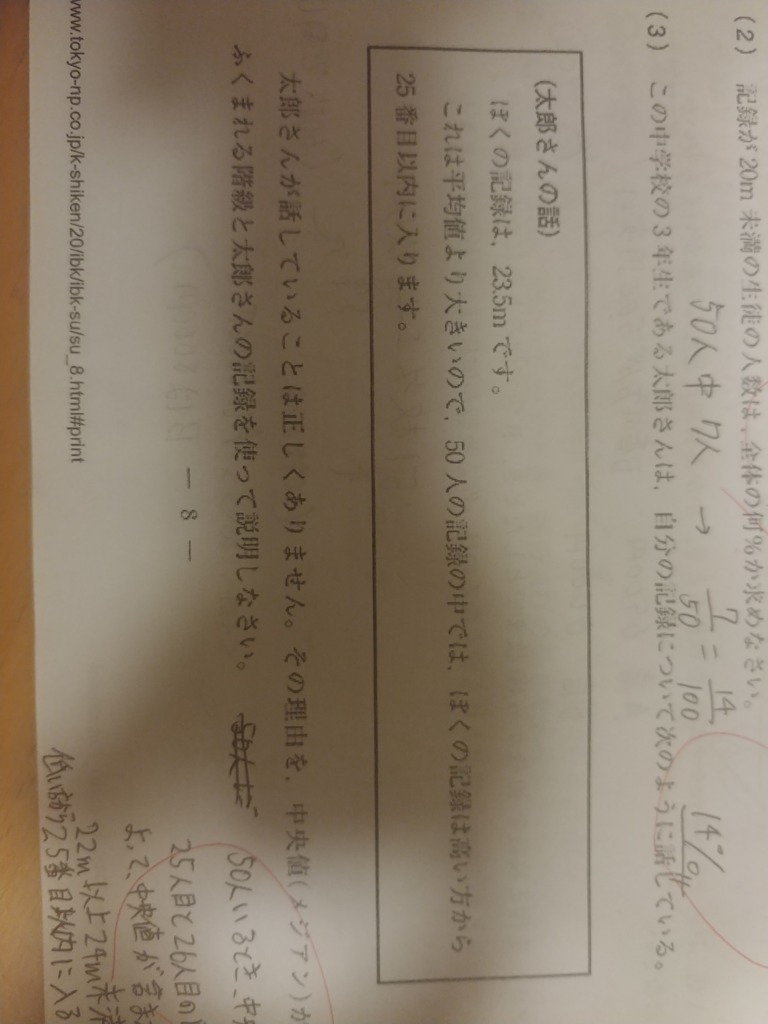 (2) 記録が20m未満の生徒の人数は、全体の何%か求めなさい。
50人中 7人 → 7/50 = 14/100 14%
(3) この中学校の3年生である太郎さんは、自分の記録について次のように話している。
(太郎さんの話)
ぼくの記録は、23.5mです。
これは平均値より大きいので、50人の記録の中では、ぼくの記録は高い方から
25番目以内に入ります。
太郎さんが話していることは正しくありません。その理由を、中央値(メジアン)が
ふくまれる階級と太郎さんの記録を使って説明しなさい。
50人いるとき、中央
25人目と26人目の
よって、中央値が含ま
22m以上24m未満
低い方から25番目以内に入る
― 8 ―
www.tokyo-np.co.jp/k-shiken/20/ibk/ibk-su/su_8.html#print